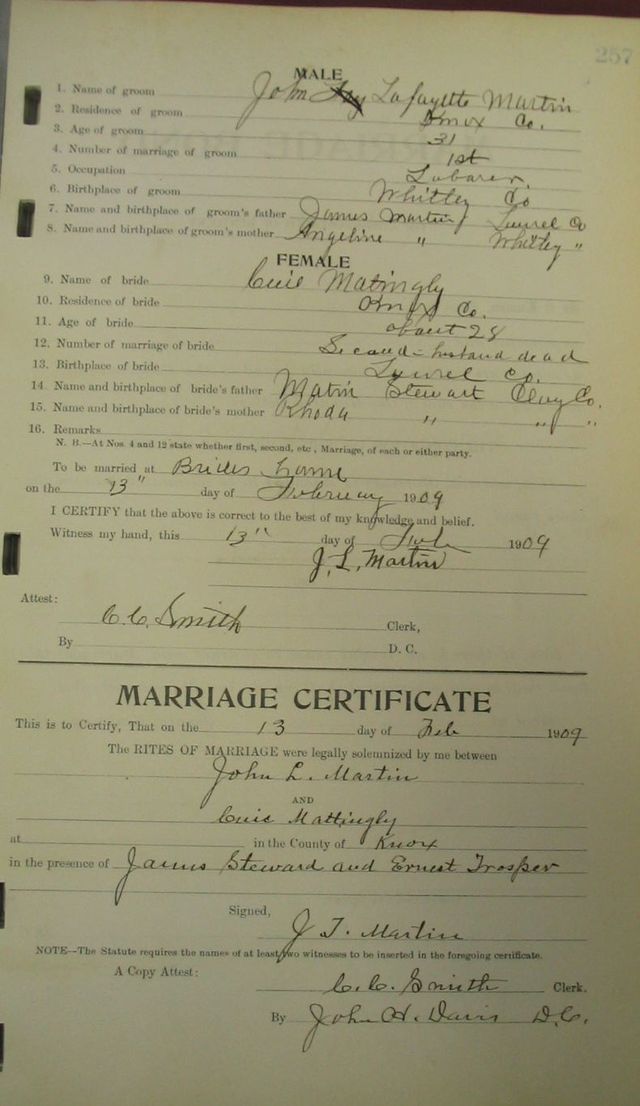 257
MALE
1. Name of groom John Lafayette Martin
2. Residence of groom Knox Co.
3. Age of groom 31
4. Number of marriage of groom 1st
5. Occupation Labarer
6. Birthplace of groom Whitley Co
7. Name and birthplace of groom's father James Martin Laurel Co
8. Name and birthplace of groom's mother Angeline " Whitley "
FEMALE
9. Name of bride Matingly
10. Residence of bride Knox Co.
11. Age of bride about 28
12. Number of marriage of bride Second - husband dead
13. Birthplace of bride Laurel Co.
14 Name and birthplace of bride's father Matin Stewart Clay Co.
15. Name and birthplace of bride's mother Rhoda " " "
16. Remarks
N. B.—At Nos. 4 and 12 state whether first, second, etc., Marriage, of each or either party.
To be married at Brides home
on the 13" day of February 1909
I CERTIFY that the above is correct to the best of my knowledge and belief.
Witness my hand, this 13" day of Feb 1909
J. L. Martin
Attest:
C. C. Smith Clerk,
By D. C.
MARRIAGE CERTIFICATE
This is to Certify, That on the 13 day of Feb 1909
The RITES OF MARRIAGE were legally solemnized by me between
John L. Martin
AND
Mattingly
at in the County of Knox
in the presence of James Steward and Ernest Trosper
Signed,
J. T. Martin
NOTE—The Statute requires the names of at least two witnesses to be inserted in the foregoing certificate.
A Copy Attest:
C. C. Smith Clerk.
By John H. Davis D.C.